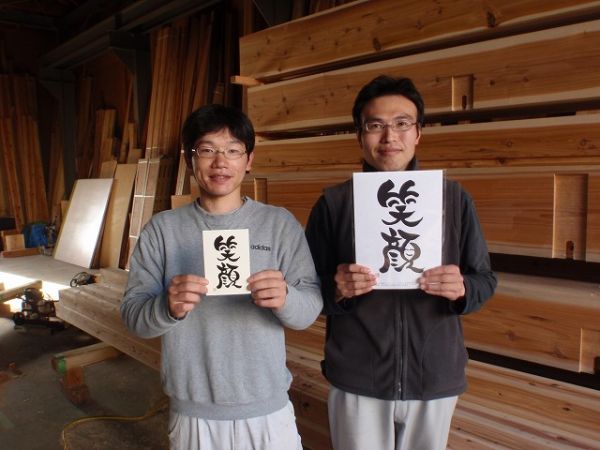 笑
顔
adidas
笑
顔